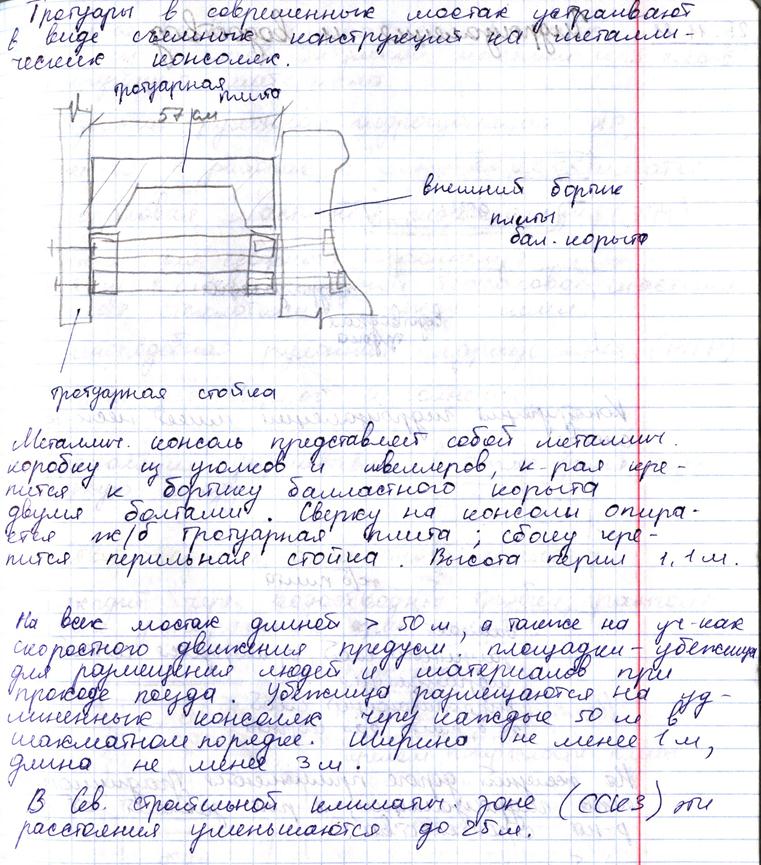 Тротуары в современных мостах устраивают
в виде съемных конструкций на металли-
ческих консолях.
тротуарная плита
57 см
внешний бортик
плиты
бал. корыта
тротуарная стойка
Металлич. консоль представляет собой металлич.
коробку из уголков и швеллеров, к-рая кре-
пится к бортику балластного корыта
двумя болтами. Сверху на консоли опира-
ется ж/б тротуарная плита; сбоку кре-
пится перильная стойка. Высота перил 1,1 м.
На всех мостах длиней > 50 м, а также на уч-ках
скоростного движения предусм. площадки-убежища
для размещения людей и материалов при
проходе поезда. Убежища размещаются на уд-
линенных консолях через каждые 50 м в
шахматном порядке. Ширина не менее 1 м,
длина не менее 3 м.
В Сев. строительной климатич. зоне (ССКЗ) эти
расстояния уменьшаются до 25 м.